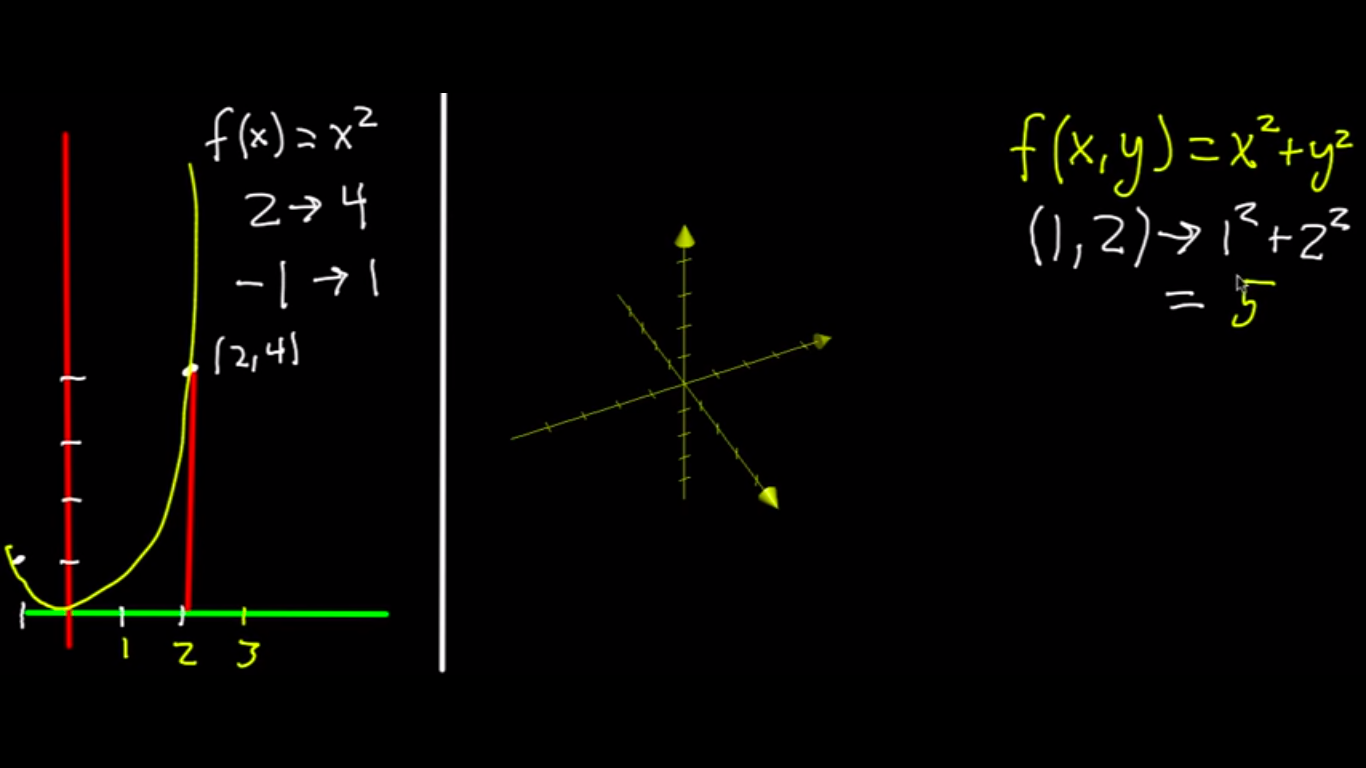 f(x) = x²
2 → 4
-1 → 1
(2,4)
1 2 3
f(x,y) = x²+y²
(1,2) → 1²+2²
= 5